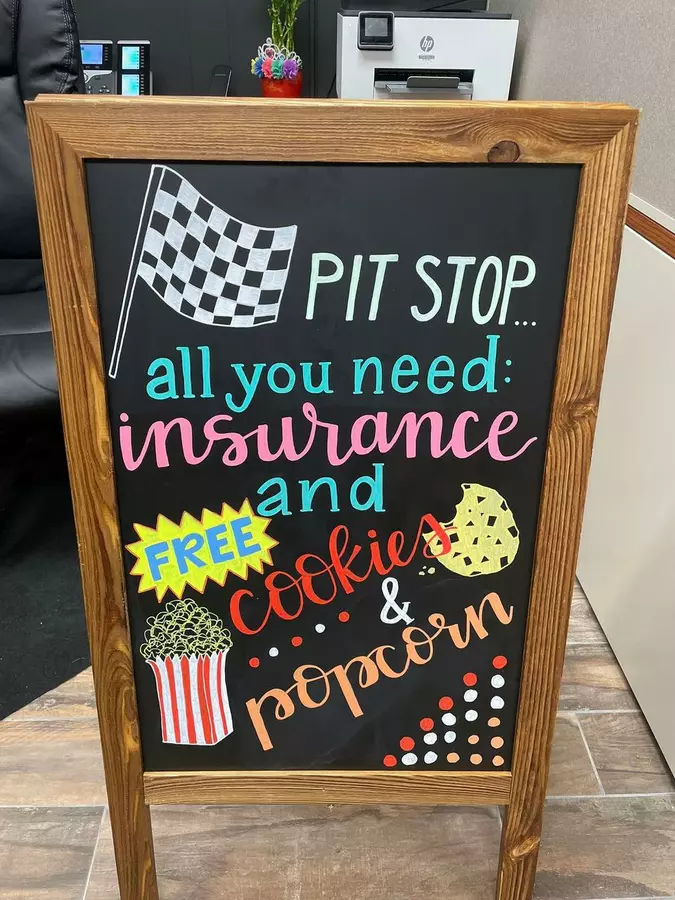 hp
PIT STOP...
all you need:
insurance
and
FREE
cookies
&
popcorn